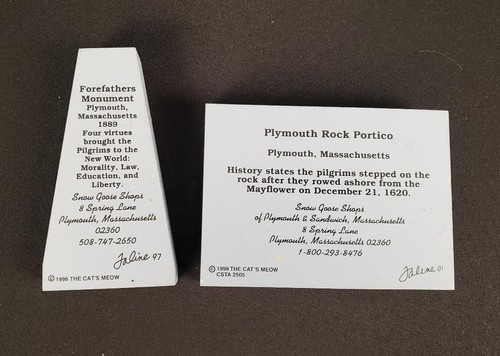 Forefathers
Monument
Plymouth,
Massachusetts
1889
Four virtues
brought the
Pilgrims to the
New World:
Morality, Law,
Education, and
Liberty.
Snow Goose Shops
8 Spring Lane
Plymouth, Massachusetts
02360
508-747-2650
Faline 97
© 1996 THE CAT'S MEOW
Plymouth Rock Portico
Plymouth, Massachusetts
History states the pilgrims stepped on the
rock after they rowed ashore from the
Mayflower on December 21, 1620.
Snow Goose Shops
of Plymouth & Sandwich, Massachusetts
8 Spring Lane
Plymouth, Massachusetts 02360
1-800-293-8476
Faline 01
© 1998 THE CAT'S MEOW
CSTA 2505